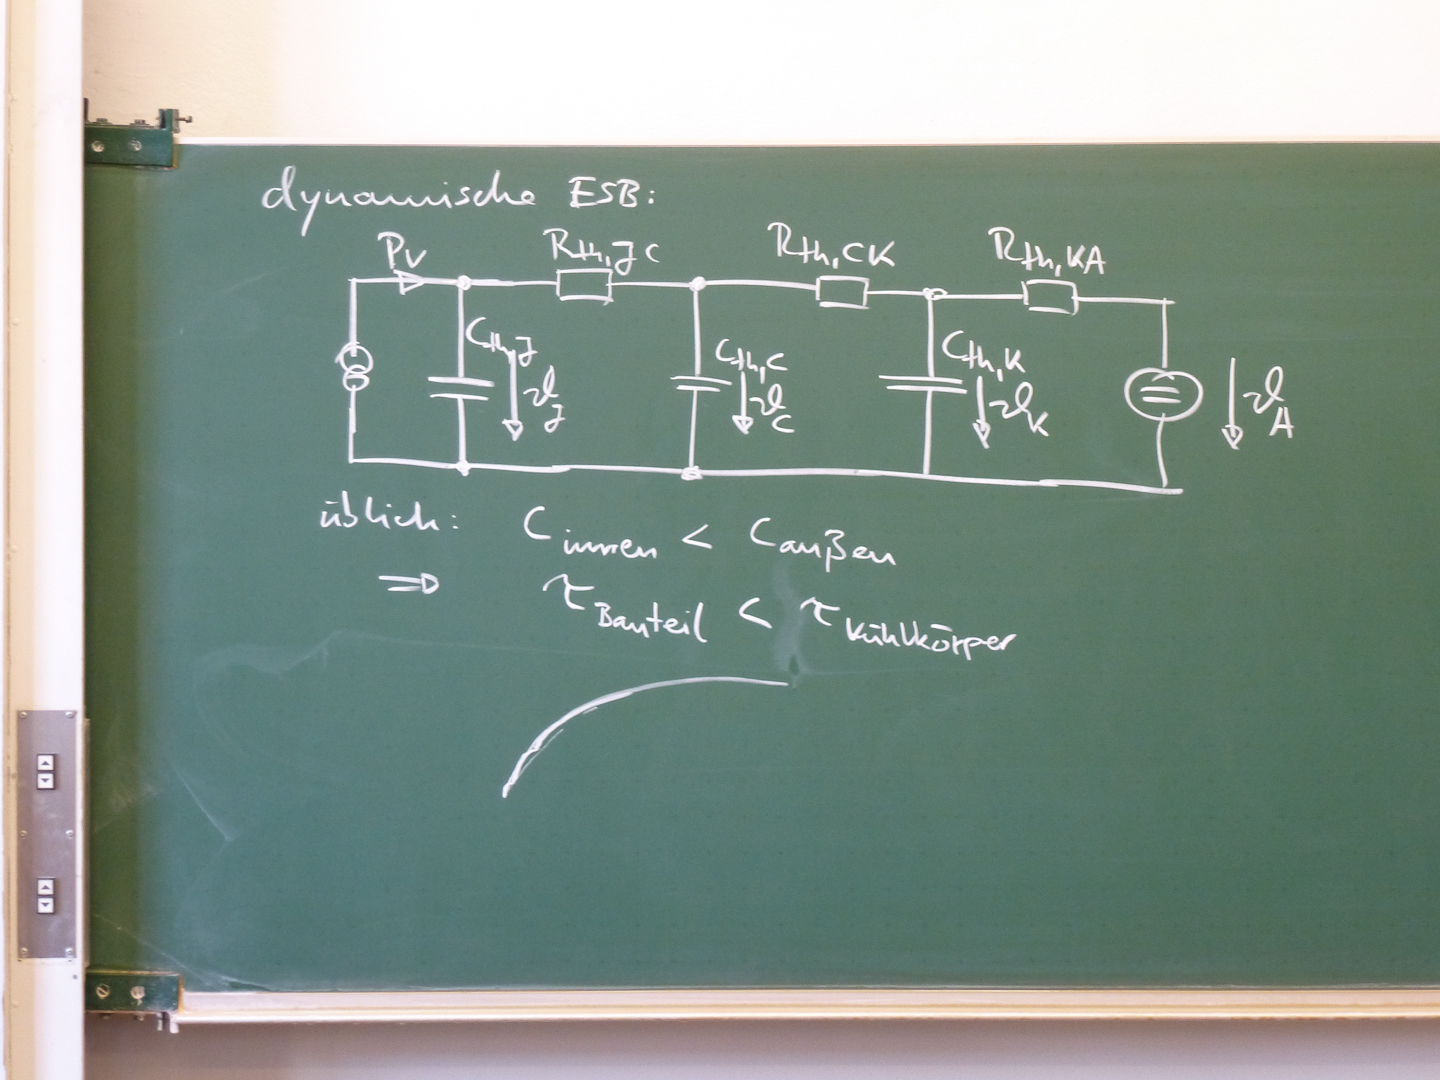 dynamische ESB:
Pv Rth,JC Rth,CK Rth,KA
Cth,J Cth,C Cth,K
ϑJ ϑC ϑK ϑA
üblich: Cinnen < Caußen
⇒ τBauteil < τKühlkörper